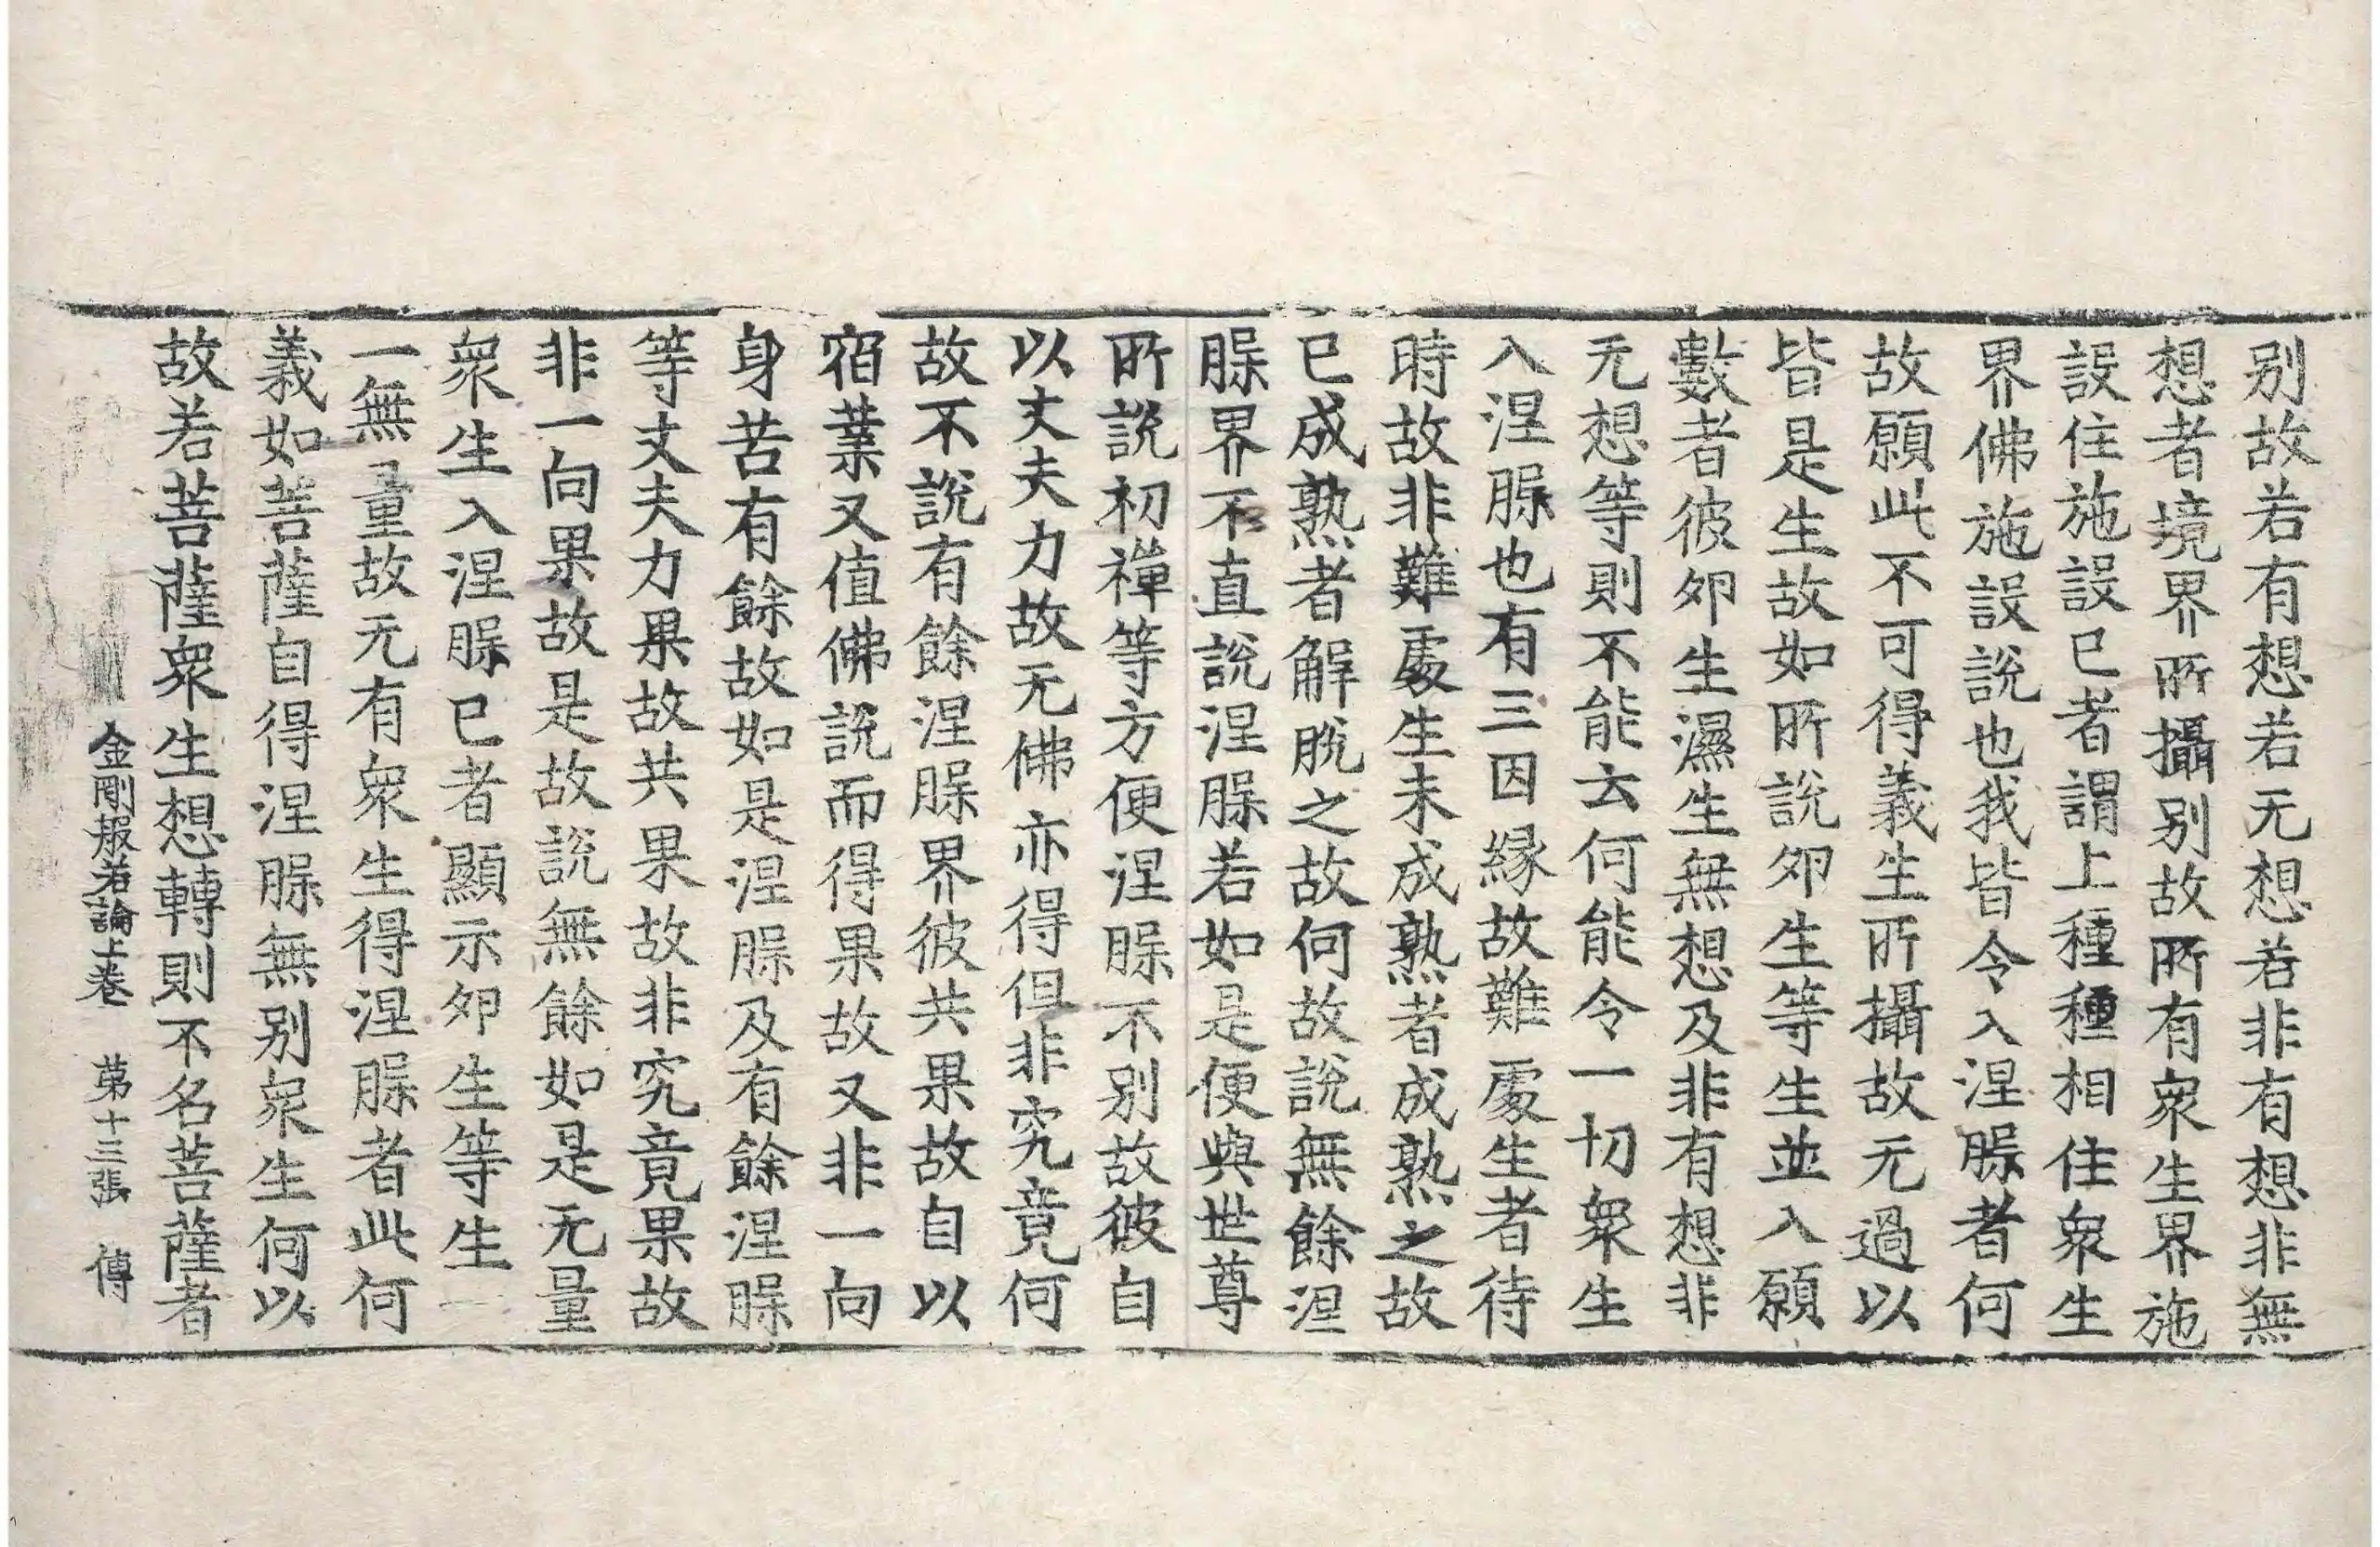 别故若有想若无想若非有想非無
想者境界所攝别故所有衆生界施
設住施設已者謂上種種相住衆生
界佛施設說也我皆令入涅䏶者何
故願此不可得義生所攝故无過以
皆是生故如所說卵生等生並入願
數者彼卵生濕生無想及非有想非
无想等則不能云何能令一切衆生
入涅䏶也有三因緣故難處生者待
時故非難處生未成熟者成熟之故
已成熟者解脫之故何故說無餘涅
䏶界不直說涅䏶若如是便與世尊
所說初禪等方便涅䏶不别故彼自
以丈夫力故无佛亦得但非究竟何
故不說有餘涅䏶界彼共果故自以
宿業又值佛說而得果故又非一向
身苦有餘故如是涅䏶及有餘涅䏶
等丈夫力果故共果故非究竟果故
非一向果故是故說無餘如是无量
衆生入涅䏶已者顯示卵生等生
一無量故无有衆生得涅䏶者此何
義如菩薩自得涅䏶無别衆生何以
故若菩薩衆生想轉則不名菩薩者
金剛般若論上卷 第十三張 傳